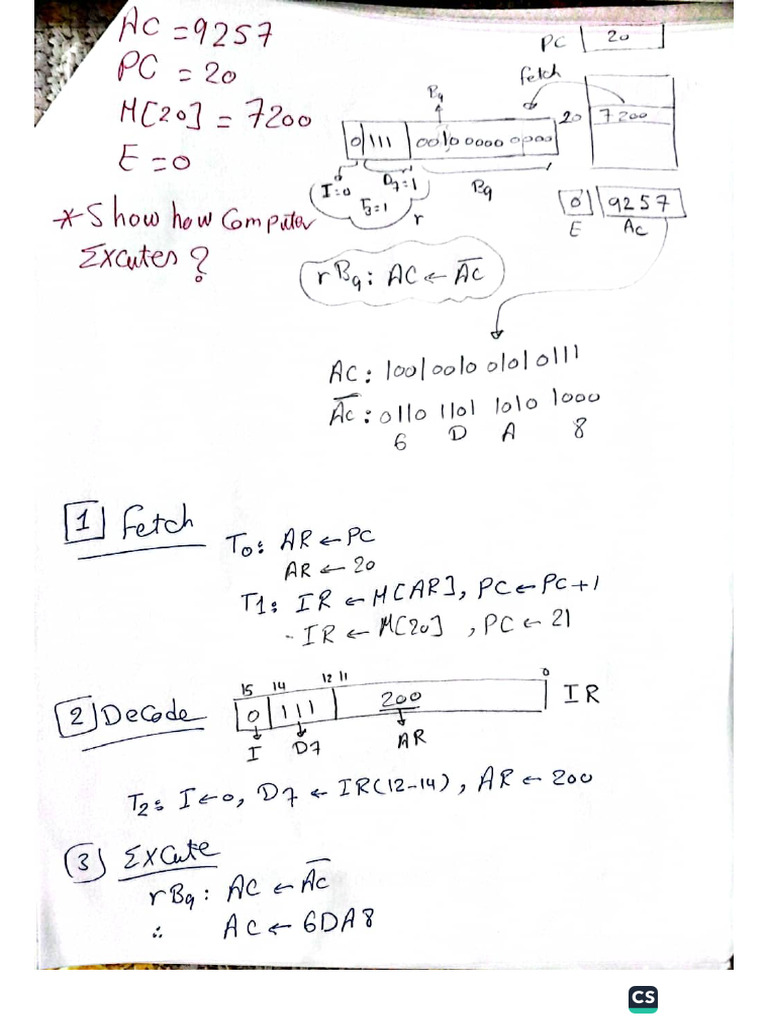 AC = 9257
PC = 20
M[20] = 7200
E = 0
* Show how Computer
Excutes?
PC 20
fetch
B9
20 7200
0 111 0010 0000 0000
I=0 D7=1 B9
T3=1
r
0 9257
E AC
rB9: AC ← A̅C̅
AC: 1001 0010 0101 0111
A̅C̅: 0110 1101 1010 1000
6 D A 8
1 Fetch
T0: AR ← PC
AR ← 20
T1: IR ← M[AR], PC ← PC+1
- IR ← M[20] , PC ← 21
15 14 12 11 0
2 Decode 0 111 200 IR
I D7 AR
T2: I ← 0, D7 ← IR(12-14), AR ← 200
3 Excute
rB9: AC ← A̅C̅
∴ AC ← 6DA8
CS